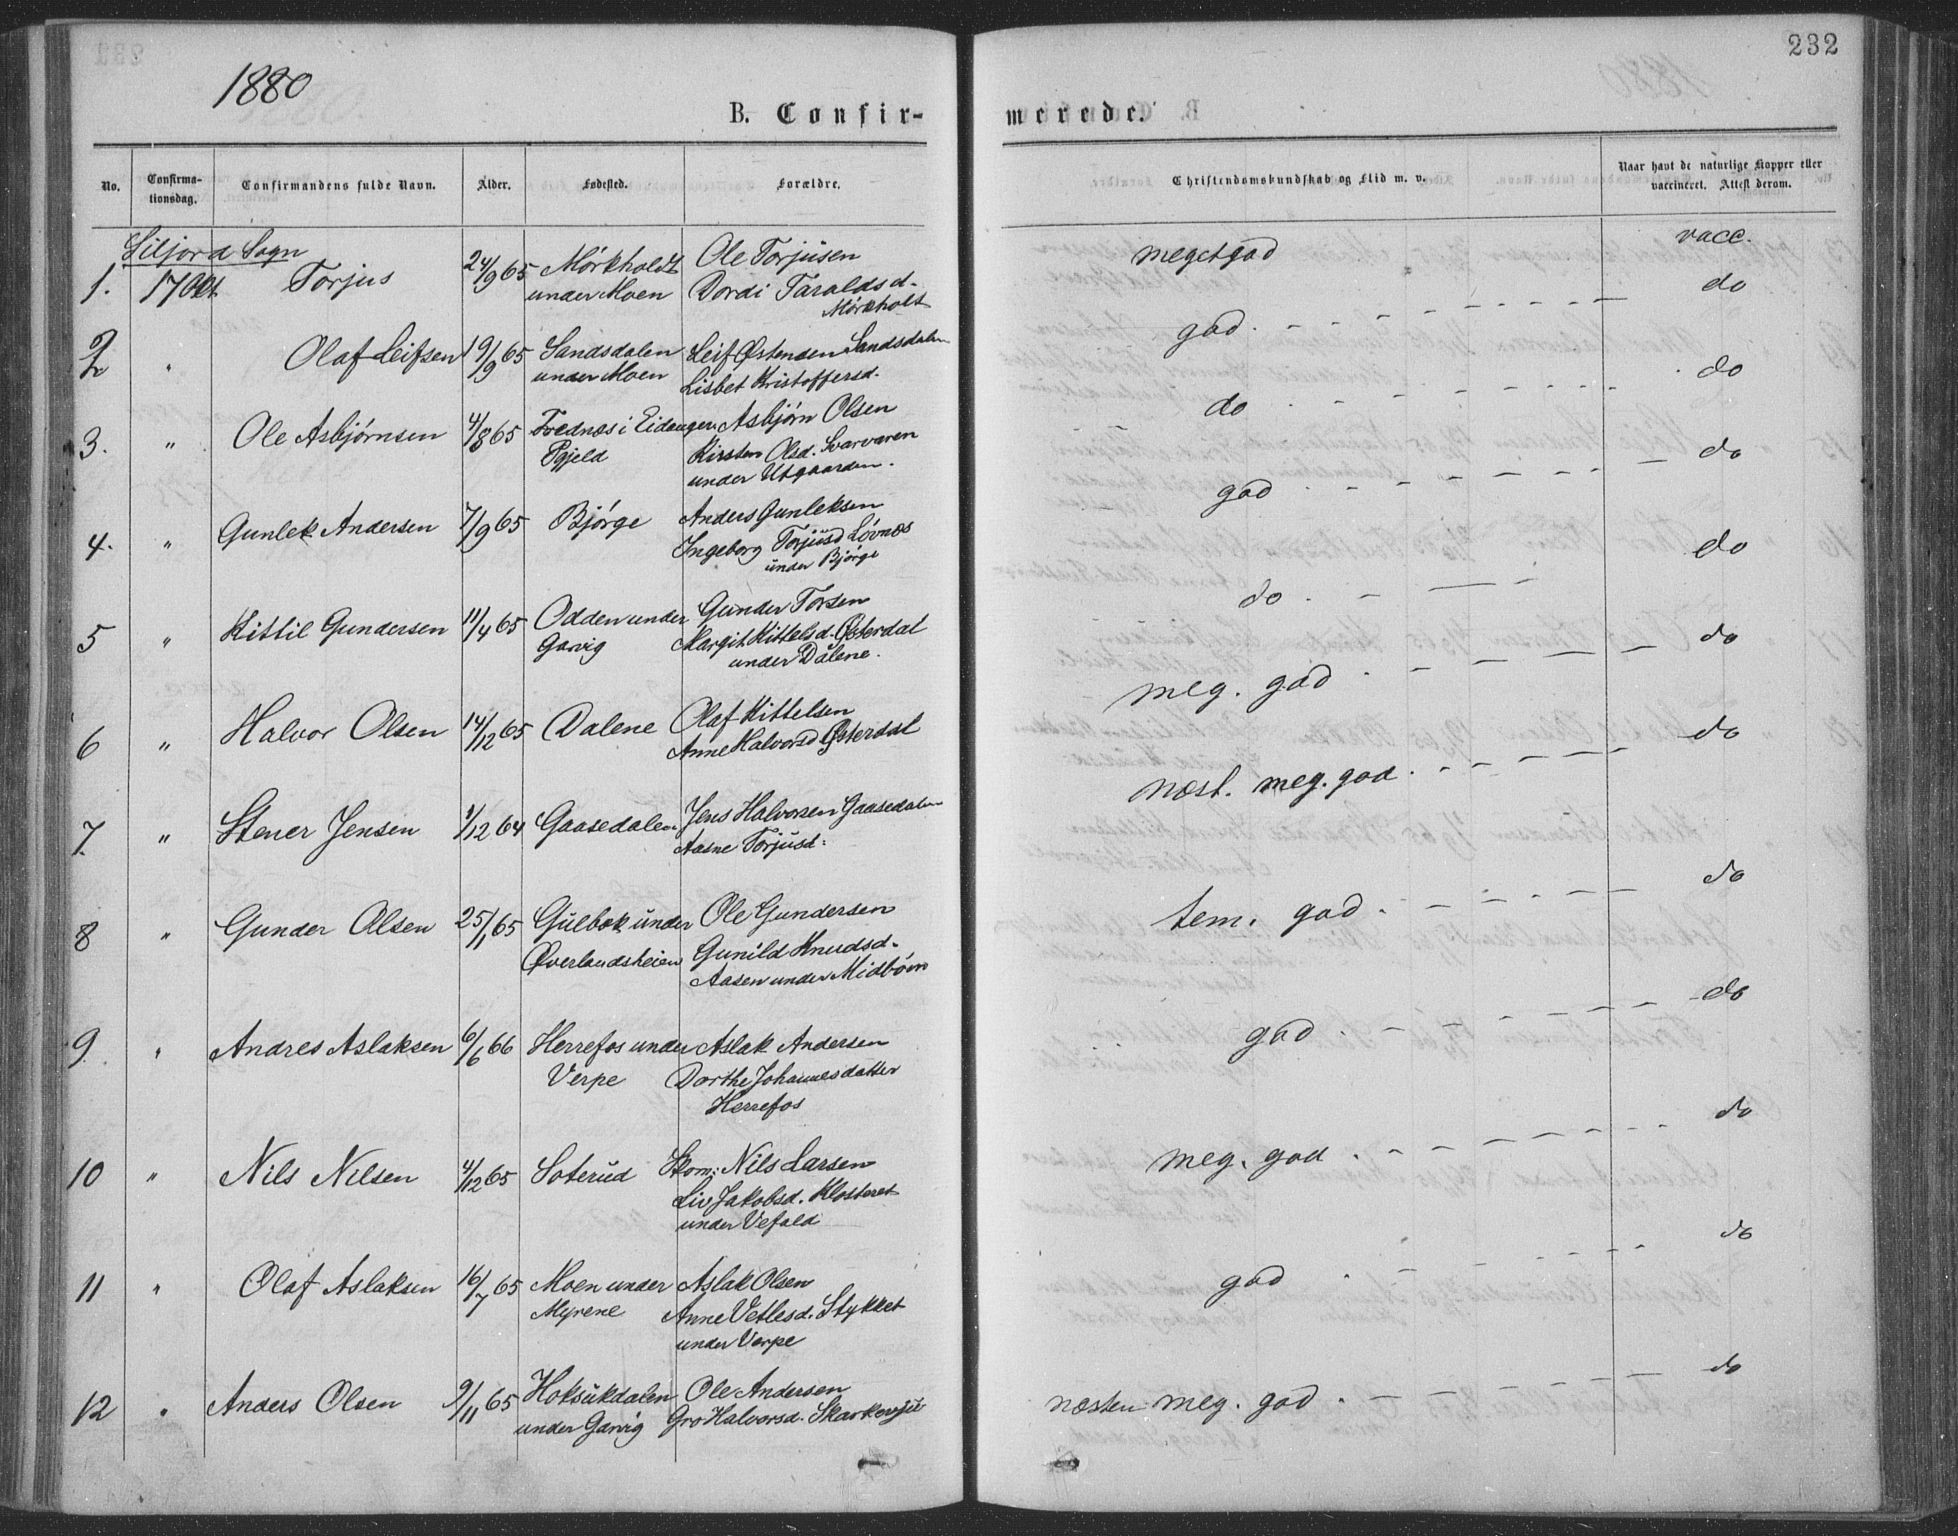 232
1880
B. Confir-
merede.
No.
Confirma-
tionsdag.
Confirmandens fulde Navn.
Alder.
Fødested.
Forældre.
Christendomskundskab og Flid m. v.
Naar havt de naturlige Kopper eller
vaccineret. Attest derom.
Siljord Sogn
1. 17 Oct. Torjus 24/9 65 Mórkholdt Ole Torjüsen megetgod vacc.
under Moen Dordi Taraldsd-
Mórkholt
2 " Olaf Leifsen 19/9 65 Sandsdalen Leif Østensen Sandsdalen god. do
under Moen Lisbet Kristoffersd.
3. " Ole Asbjørnsen 4/8 65 Trednæs i Eidanger Asbjørn Olsen do do
Pgjeld Kirsten Olsd. Svarvaren
under Utgaarden.
4. " Gunlek Andersen 7/9 65 Bjórge Anders Gunleksen god do
Ingeborg Torjüsd Lóvnæs
ünder Bjórge
5 " Kittil Gundersen 11/4 65 Odden under Gunder Torsen do. do
Garvig Margit Kittelsd. Østerdal
under Dalene.
6 " Halvor Olsen 14/12 65 Dalene Olaf Kittelsen meg. god do
Anne Halvorsd Østerdal
7. " Stener Jensen 1/12 64 Gaasedalen Jens Halvorsen Gaasedalen næst. meg. god do
Aasne Torjüsd:
8 " Gunder Olsen 25/1 65 Gülbæk ünder Ole Gundersen tem. god do
Øverlandsheien Gunild Knudsd.
Aasen under Midbóen
9. " Andres Aslaksen 6/6 66 Herrefos under Aslak Andersen god do
Verpe Dorthe Johannesdatter
Herrefos
10 " Nils Nilsen 4/12 65 Soterüd Skom: Nils Larsen meg. god do
Liv Jakobsd. Klosteret
under Vefald
11 " Olaf Aslaksen 16/7 65 Moen under Aslak Olsen god do
Myrene Anne Vetlesd. Stykket
under Verpe
12 " Anders Olsen 9/11 65 Hoksükdalen Ole Andersen næsten meg. god do
under Garvig Gro Halvorsd.